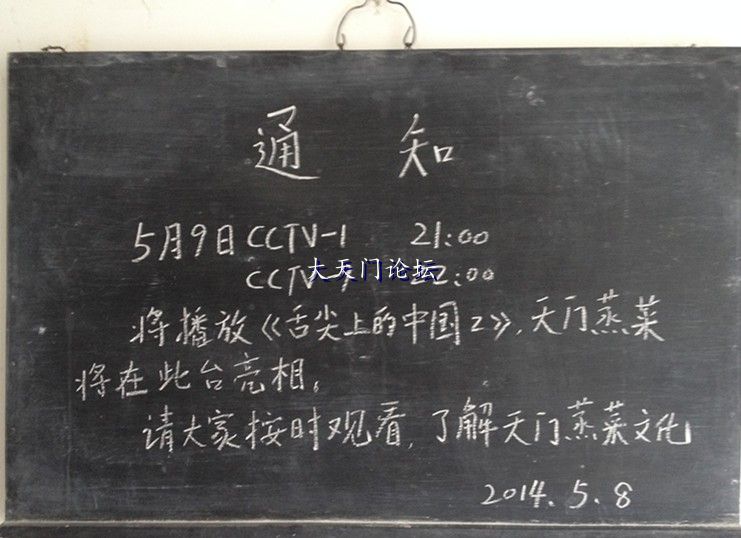 通知
5月9日 CCTV-1 21:00
CCTV- 22:00
大天门论坛
将播放《舌尖上的中国2》,天门蒸菜
将在此台亮相。
请大家按时观看,了解天门蒸菜文化
2014.5.8